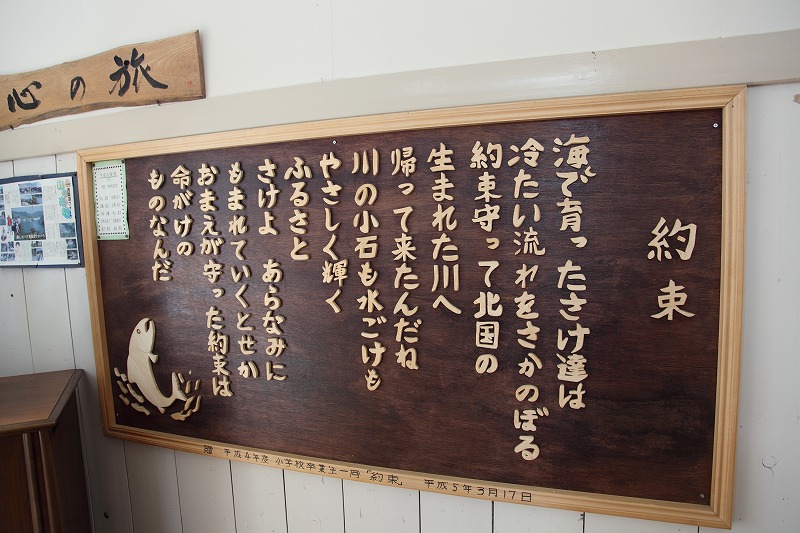 心の旅
約束
海で育ったさけ達は
冷たい流れをさかのぼる
約束守って北国の
生まれた川へ
帰って来たんだね
川の小石も水ごけも
やさしく輝く
ふるさと
さけよ　あらなみに
もまれていくとせか
おまえが守った約束は
命がけの
ものなんだ
贈　平成4年度　小学校卒業生一同「約束」　平成5年3月17日